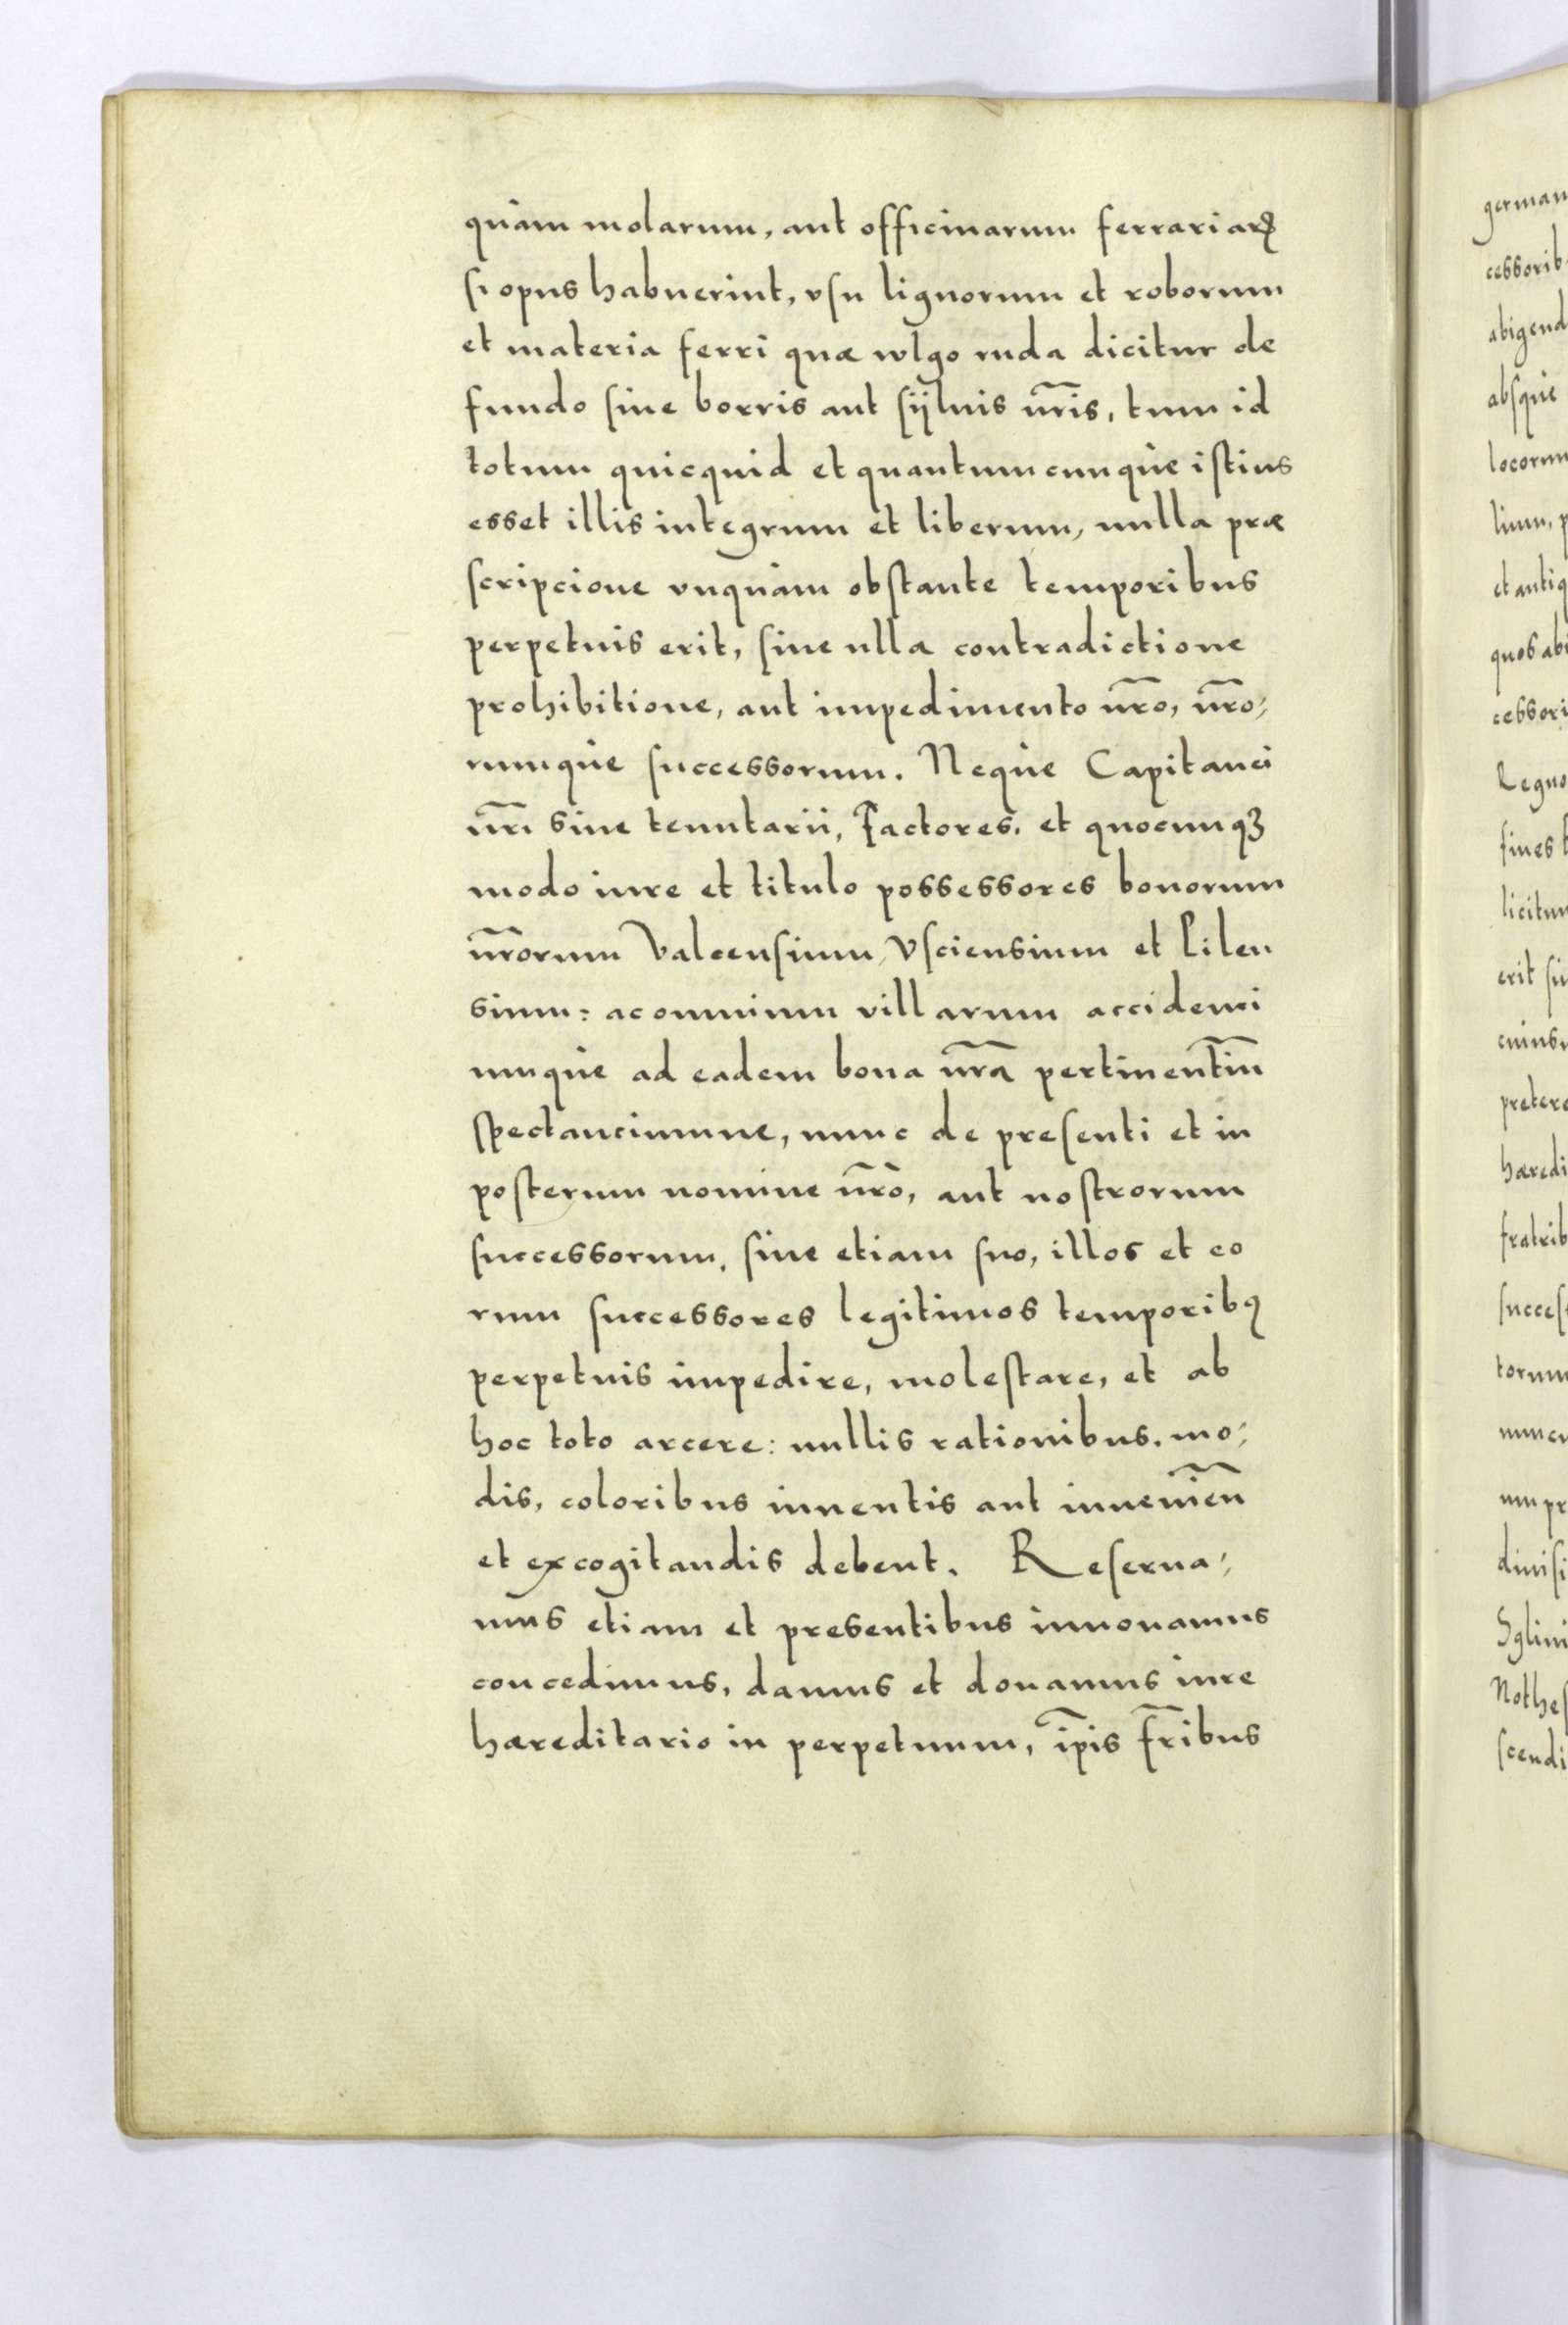 quàm molarum, aut officinarum ferrariaꝝ
ſi opus habuerint, vſu lignorum et roborum
et materia ferri quæ wlgo ruda dicitur de
fundo ſiue borris aut ſÿluis nr̃is, tum id
totum quicquid et quantumcunque iſtius
esset illis integrum et liberum, nulla præ
ſcripcione vnquàm obſtante temporibus
perpetuis erit, ſine ulla contradictione
prohibitione, aut impedimento nr̃o, nr̃o⸗
rumque ſuccessorum. Neque Capitanei
nr̃i siue tenutarii, Factores, et quocunqꝫ
modo iure et titulo possessores bonorum
nr̃orum Valcensium, Vſciensium et Pilen
sium: ac omnium villarum accidenci
umque ad eadem bona nr̃a pertinentiũ
ſpectanciumue, nunc de preſenti et in
poſterum nomine nr̃o, aut noſtrorum
ſuccessorum, ſiue etiam ſuo, illos et eo
rum ſuccessores legitimos temporibꝰ
perpetuis impedire, moleſtare, et ab
hoc toto arcere: nullis rationibus, mo⸗
dis, coloribus inuentis aut inueniẽn
et excogitandis debent. Reſerua⸗
mus etiam et presentibus innouamus
concedimus, damus et donamus iure
hæreditario in perpetuum, ip̃is fr̃ibus
german
cessorib
abigend
abſque
locorum
lium, p
et antiq
quos abi
cessori
Regno
fines
licitum
erit ſi
cuiusu
pretere
hæredi
fratrib
ſucceſ
torum
nuncu
um pr
diuiſi
Sglini
Notheſ
ſcendi